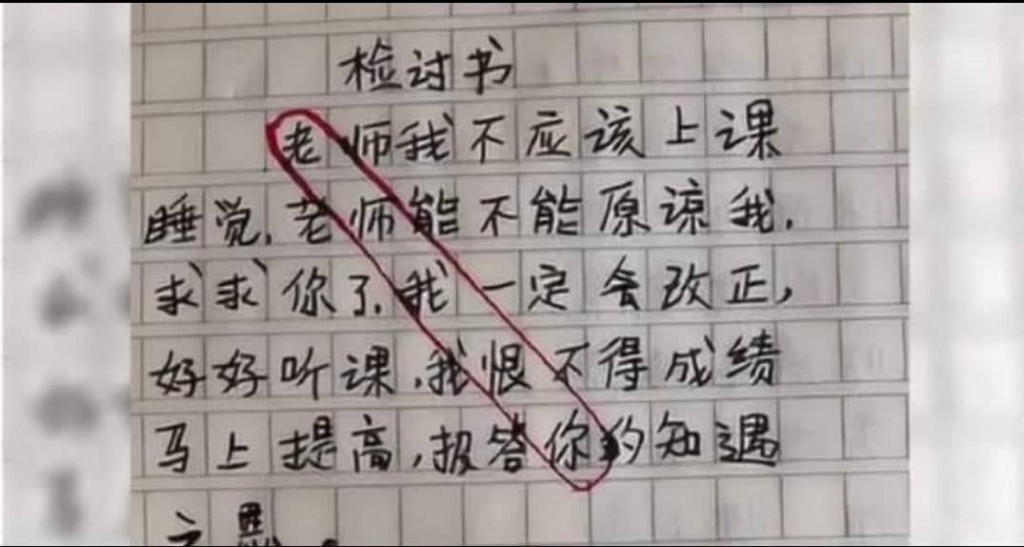 检讨书
老师我不应该上课
睡觉,老师能不能原谅我,
求求你了,我一定会改正,
好好听课,我恨不得成绩
马上提高,报答你的知遇
之恩。